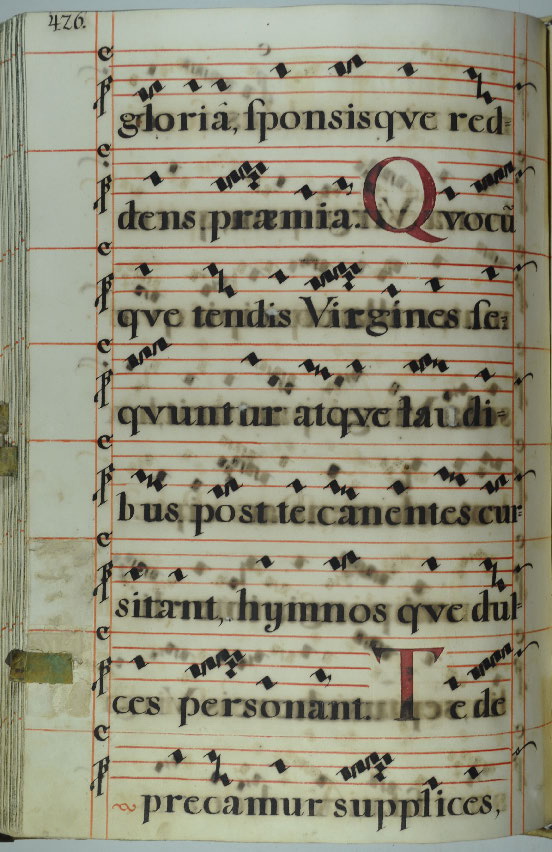 426.
gloriâ, ſponsisqve red-
dens præmia. Qvocũ
qve tendis Virgines ſe-
qvuntur atqve laudi-
bus post te canentes cur-
sitant, hymnos qve dul-
ces personant. Te de
precamur supplices,